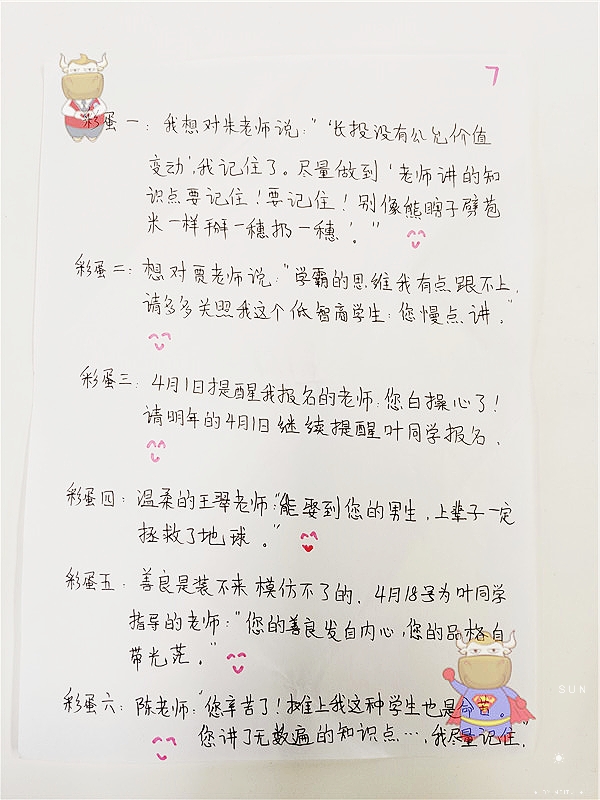 7
彩蛋一：我想对朱老师说："'长投没有公允价值
变动'，我记住了。尽量做到'老师讲的知
识点要记住！要记住！别像熊瞎子劈苞
米一样掰一穗扔一穗'。"
彩蛋二：想对贾老师说："学霸的思维我有点跟不上，
请多多关照我这个低智商学生：您慢点讲。"
彩蛋三：4月1日提醒我报名的老师：您白操心了！
请明年的4月1日继续提醒叶同学报名．
彩蛋四：温柔的王翠老师："能娶到您的男生，上辈子一定
拯救了地球。"
彩蛋五：善良是装不来模仿不了的．4月18号为叶同学
指导的老师："您的善良发自内心，您的品格自
带光茫。"
彩蛋六：陈老师："您辛苦了！摊上我这种学生也是命苦。
您讲了无数遍的知识点…，我尽量记住"．
SUN